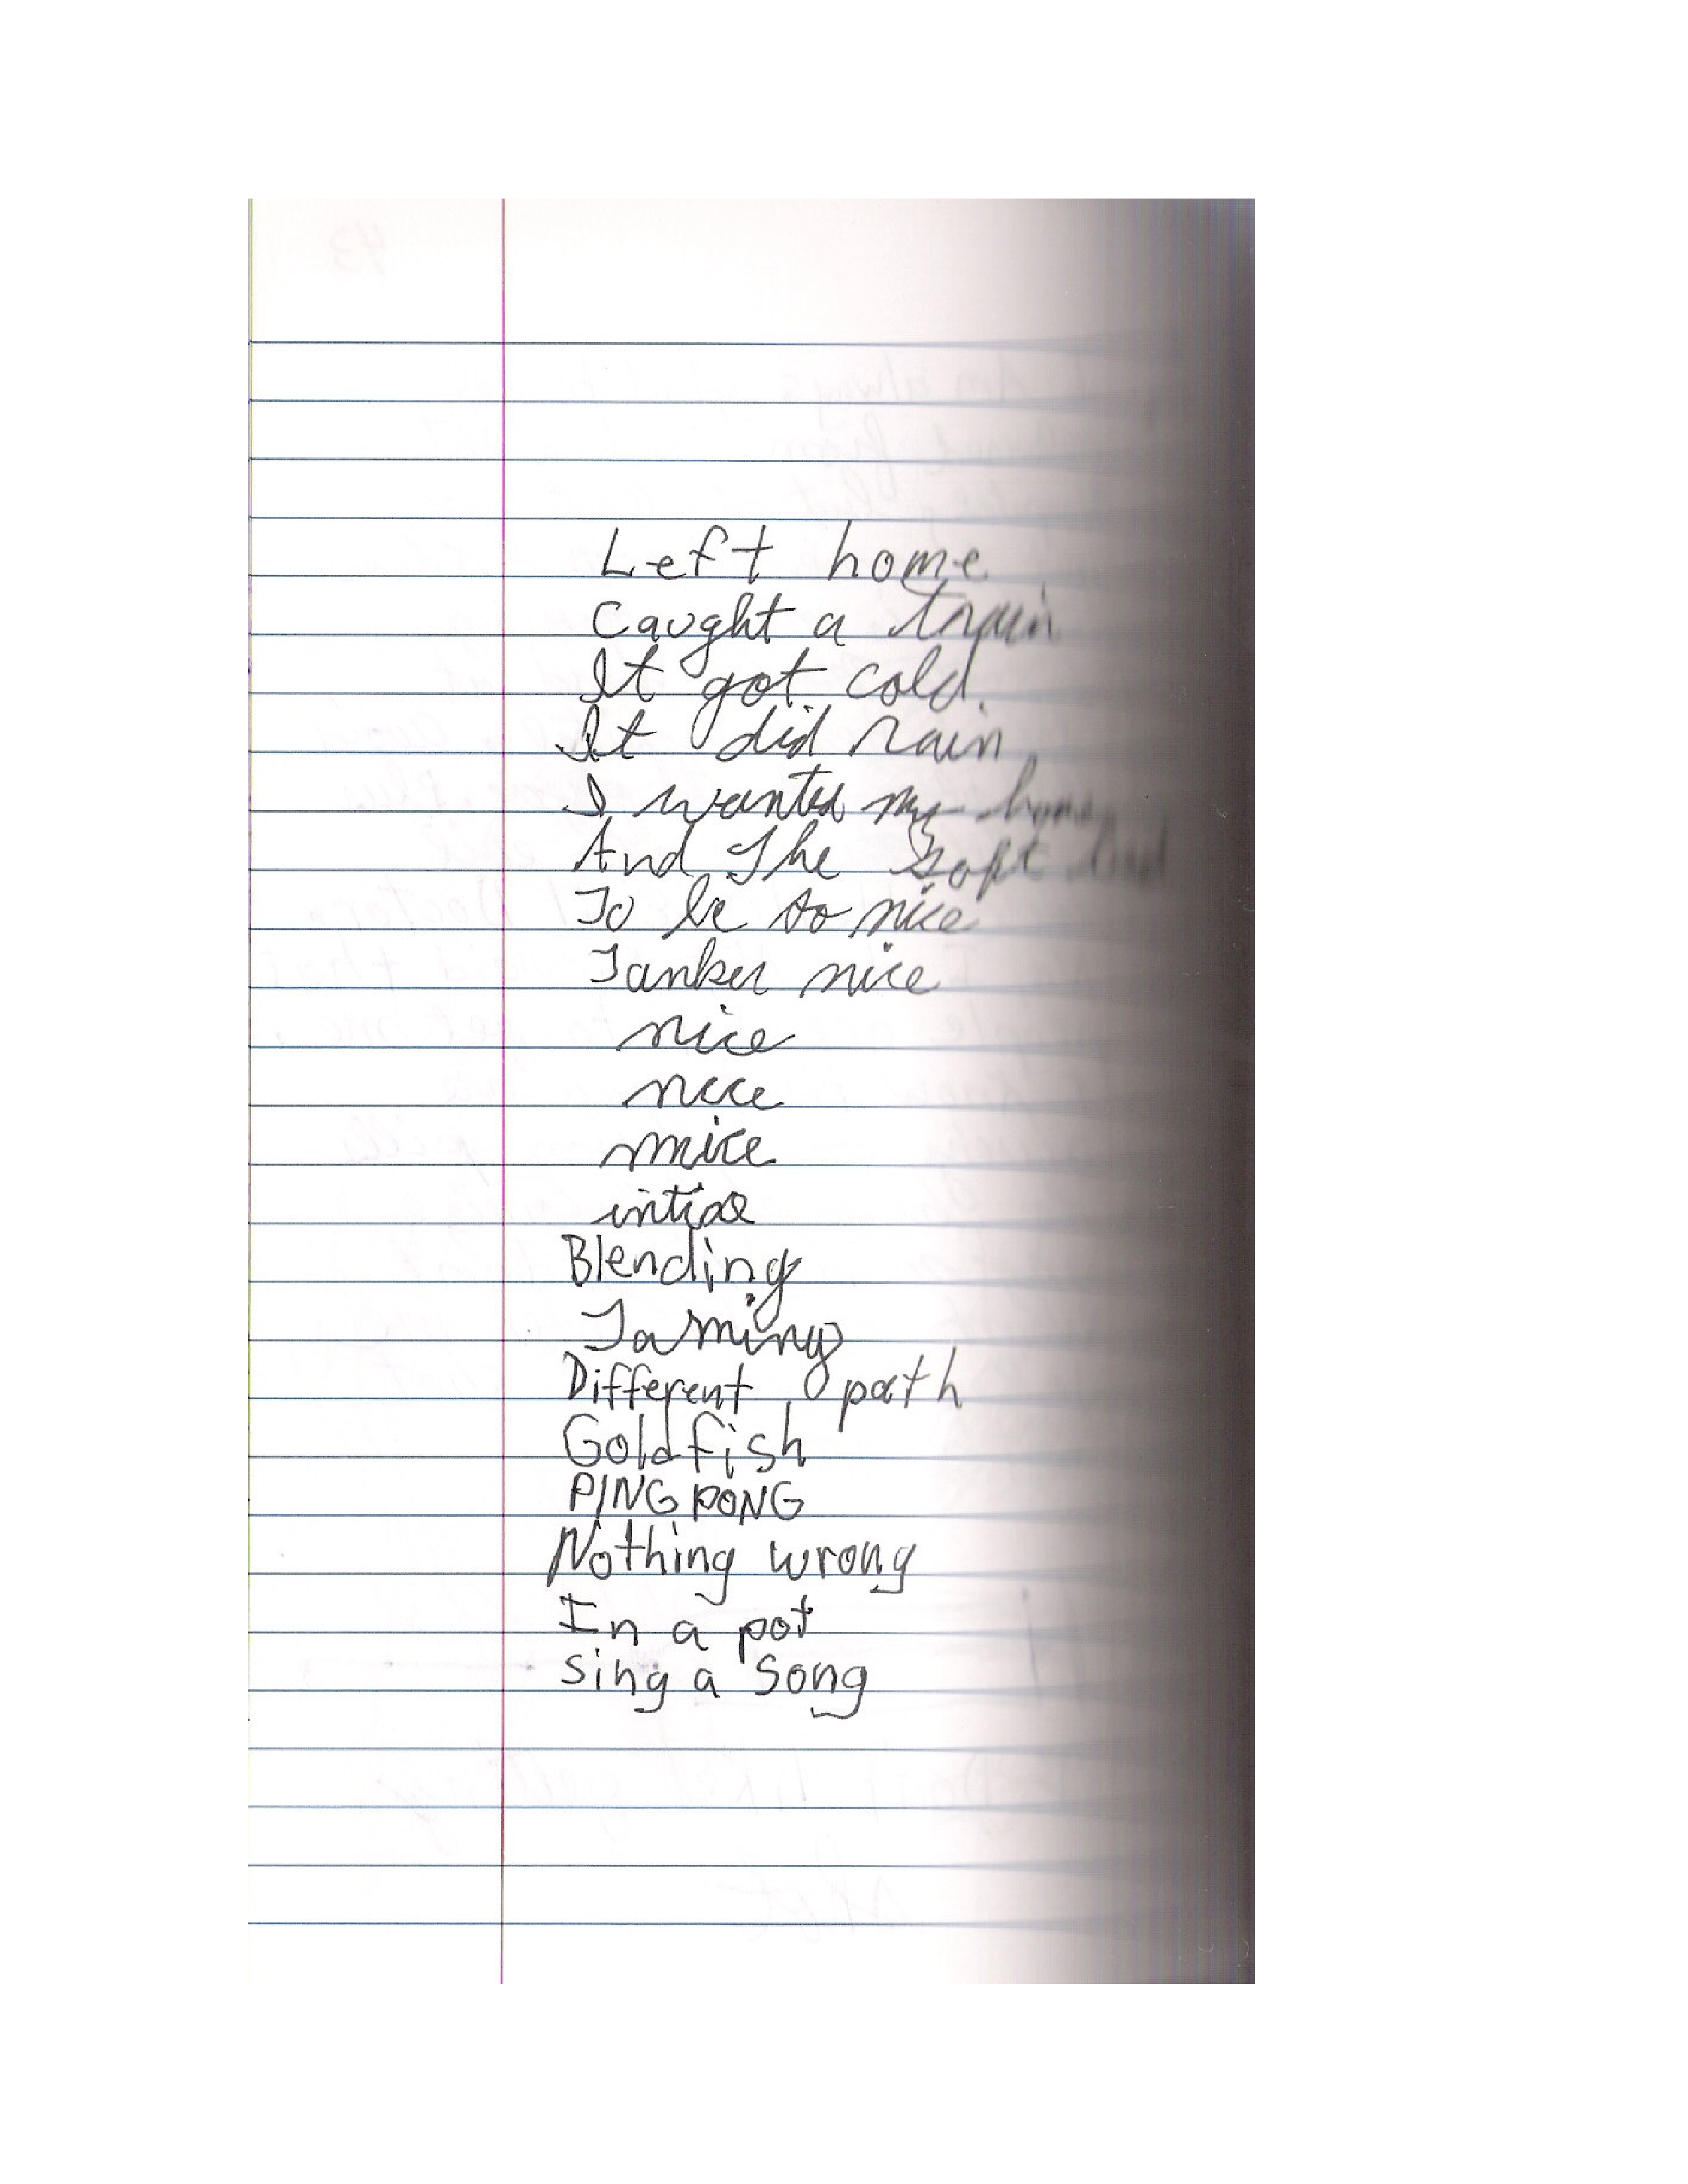 Left home
Caught a train
It got cold
It did rain
I wanted my home
And The Soft bed
To be so nice
nice
nice
nice
mice
Blending
Taming
Different path
Goldfish
PING PONG
Nothing wrong
In a pot
Sing a song